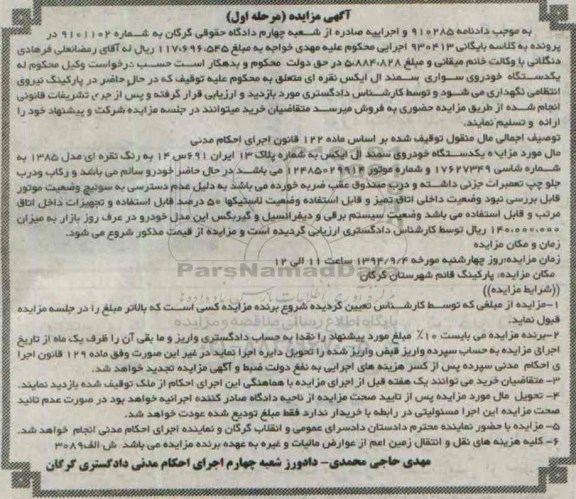 آگهی مزایده (مرحله اول)
به موجب دادنامه ۹۱۰۲۸۵ و اجراییه صادره از شعبه چهارم دادگاه حقوقی گرگان به شماره ۹۱۰۱۱۰۲ در
پرونده به کلاسه بایگانی ۹۳۰۴۱۳ اجرایی محکوم علیه مهدی خواجه به مبلغ ۱۱۷،۶۹۶،۵۴۵ ریال له آقای رمضانعلی فرهادی
دنگلانی با وکالت خانم میقانی و مبلغ ۵،۸۸۴،۸۲۸ در حق دولت محکوم و بدهکار است حسب درخواست وکیل محکوم له
یکدستگاه خودروی سواری سمند ال ایکس نقره ای متعلق به محکوم علیه توقیف که در حال حاضر در پارکینگ نیروی
انتظامی نگهداری می شود و توسط کارشناس دادگستری مورد بازدید و ارزیابی قرار گرفته و پس از جری تشریفات قانونی
انجام شده از طریق مزایده حضوری به فروش میرسد متقاضیان خرید میتوانند در جلسه مزایده شرکت و پیشنهاد خود را
ارائه و تسلیم نمایند.
توصیف اجمالی مال منقول توقیف شده بر اساس ماده ۱۲۲ قانون اجرای احکام مدنی
مال مورد مزایده یکدستگاه خودروی سمند ال ایکس به شماره پلاک ۱۳ ایران ۶۹۱س۱۴ به رنگ نقره ای مدل ۱۳۸۵ به
شماره شاسی ۱۷۶۲۷۳۴۹ و شماره موتور ۱۲۴۸۵۰۲۹۹۱۴ می باشد در حال حاضر خودرو سالم می باشد و رکاب ودرب
جلو چپ تعمیرات جزئی داشته و درب صندوق عقب ضربه خورده می باشد به دلیل عدم دسترسی به سوئیچ وضعیت موتور
قابل بررسی نبود وضعیت داخلی اتاق تمیز و قابل استفاده وضعیت لاستیکها ۵۰ درصد قابل استفاده و تجهیزات داخل اتاق
مرتب و قابل استفاده می باشد وضعیت سیستم برقی و دیفرانسیل و گیربکس این مدل خودرو در عرف روز بازار به میزان
۱۴۰،۰۰۰،۰۰۰ ریال توسط کارشناس دادگستری ارزیابی گردیده است و مزایده از قیمت مذکور شروع می شود.
زمان و مکان مزایده
زمان مزایده:روز چهارشنبه مورخه ۱۳۹۴/۹/۴ ساعت ۱۱ الی ۱۲
مکان مزایده: پارکینگ قائم شهرستان گرگان
ParsNamadData
((شرایط مزایده))
پایگاه اطلاع رسانی مناقصه و مزایده
۱-مزایده از مبلغی که توسط کارشناس تعیین گردیده شروع برنده مزایده کسی است که بالاتر مبلغ را در جلسه مزایده
قبول نماید.
۲-برنده مزایده می بایست ۱۰٪ مبلغ مورد پیشنهاد را نقدا به حساب دادگستری واریز و ما بقی آن را ظرف یک ماه از تاریخ
اجرای مزایده به حساب سپرده واریز قبض واریز شده را تحویل دایره اجرا نماید در غیر این صورت وفق ماده ۱۲۹ قانون اجرا
ی احکام مدنی سپرده پس از کسر هزینه های اجرایی به نفع دولت ضبط و آگهی مزایده تجدید خواهد شد.
۳- متقاضیان خرید می توانند یک هفته قبل از اجرای مزایده با هماهنگی این اجرای احکام از ملک توقیف شده بازدید نمایند.
۴- تحویل مال مورد مزایده پس از تایید صحت مزایده از ناحیه دادگاه صادر کننده اجرائیه خواهد بود در صورت عدم تائید
صحت مزایده این اجرا مسئولیتی در رابطه با خریدار ندارد فقط مبلغ تودیع شده عودت خواهد شد.
۵- مزایده با حضور نماینده محترم دادستان دادسرای عمومی و انقلاب گرگان و نماینده اجرای احکام مدنی انجام خواهد شد.
۶- کلیه هزینه های نقل و انتقال زمین اعم از عوارض مالیات و غیره به عهده برنده مزایده می باشد ش الف:۳۰۸۹
مهدی حاجی محمدی- دادورز شعبه چهارم اجرای احکام مدنی دادگستری گرگان